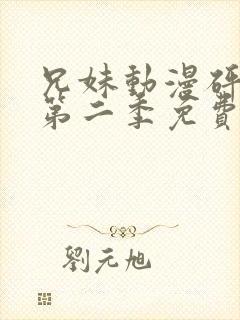 兄妹動漫研
第二季免費
劉元旭